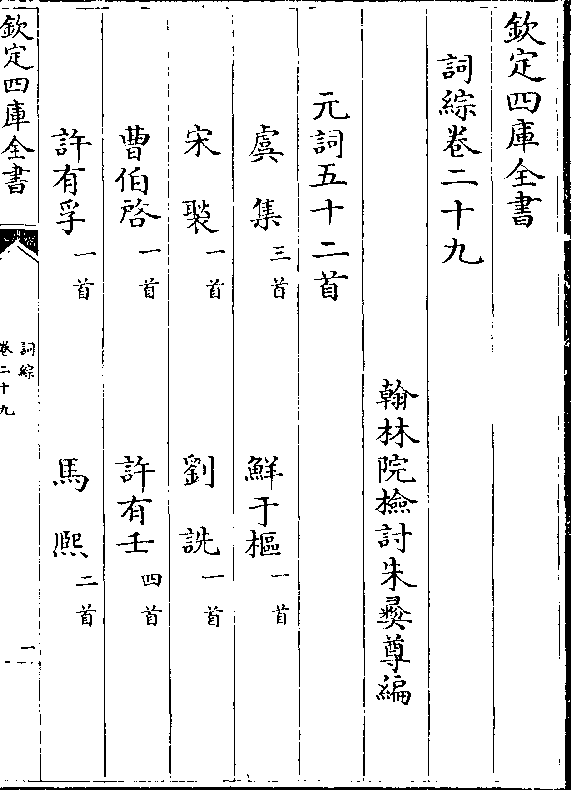 欽定四庫全書
詞綜卷二十九
翰林院檢討朱彛尊編
元詞五十二首
虞集三首 鮮于樞一首
宋褧一首 劉詵一首
曹伯啓一首 許有壬四首
許有孚一首 馬熈二首
欽定四庫全書
詞綜
卷二十九
一